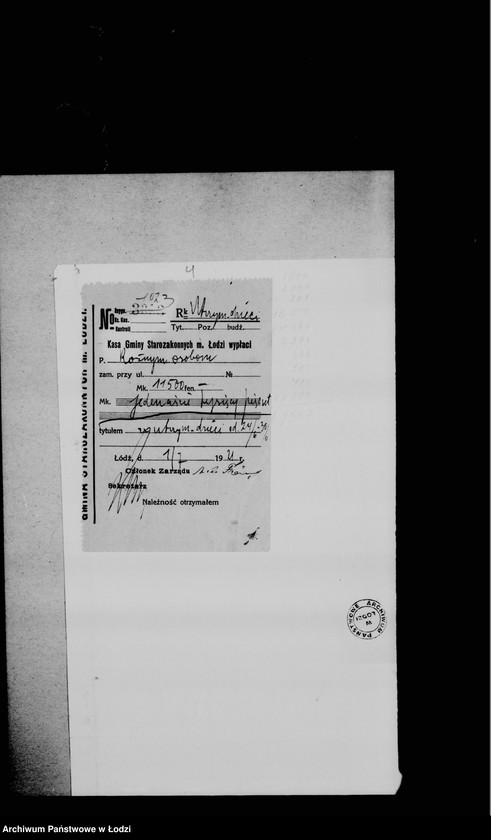 4
GMINA STAROZAKONNYCH M. ŁODZI.
1023
№ Rk Utrzym. dzieci
Kontroli Tyt. Poz. budż.
Kasa Gminy Starozakonnych m. Łodzi wypłaci
P. Różnym osobom
zam. przy ul. №
Mk. 11500 fen. —
Mk. jedenaście tysięcy pięćset
tytułem utrzym. dzieci od 24/6-30/6
Łódź, d. 1/7 1921 r.
Członek Zarządu
Sekretarz
Należność otrzymałem
ARCHIWUM PAŃSTWOWE W ŁODZI
Archiwum Państwowe w Łodzi